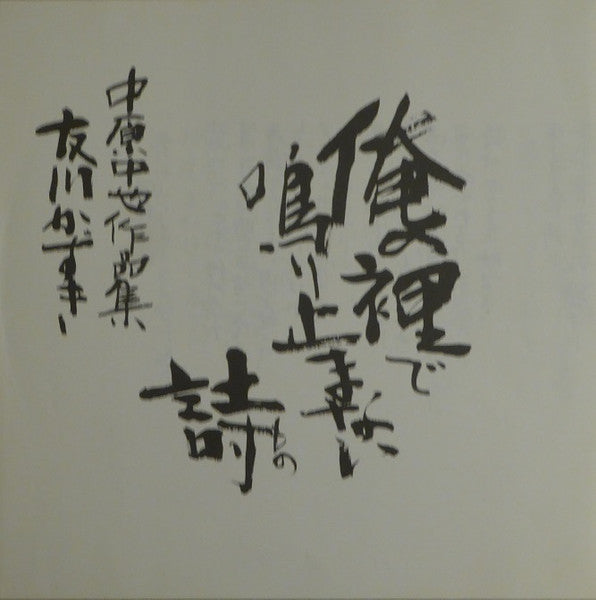 俺の裡で
鳴り止まない
詩もの
中原中也作品集
友川かずき